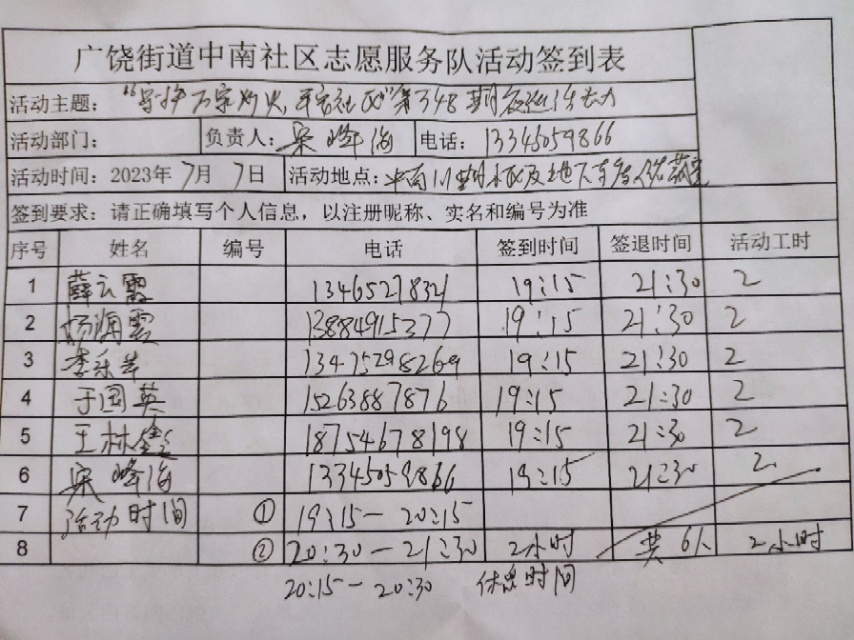 广饶街道中南社区志愿服务队活动签到表
活动主题：“守护万家灯火，平安社区”第348期夜巡活动
活动部门： 负责人：梁峰海 电话：13345059866
活动时间：2023年7月7日 活动地点：中南
签到要求：请正确填写个人信息，以注册昵称、实名和编号为准
序号 姓名 编号 电话 签到时间 签退时间 活动工时
1 薛云霞 13465278321 19:15 21:30 2
2 杨海霞 13884915377 19:15 21:30 2
3 李乐苹 13475298269 19:15 21:30 2
4 于国英 15263887876 19:15 21:30 2
5 王林鑫 18754678198 19:15 21:30 2
6 梁峰海 13345059866 19:15 21:30 2
7 活动时间 ① 19:15-20:15
8 ② 20:30-21:30 2小时 共6人 2小时
20:15-20:30 休息时间